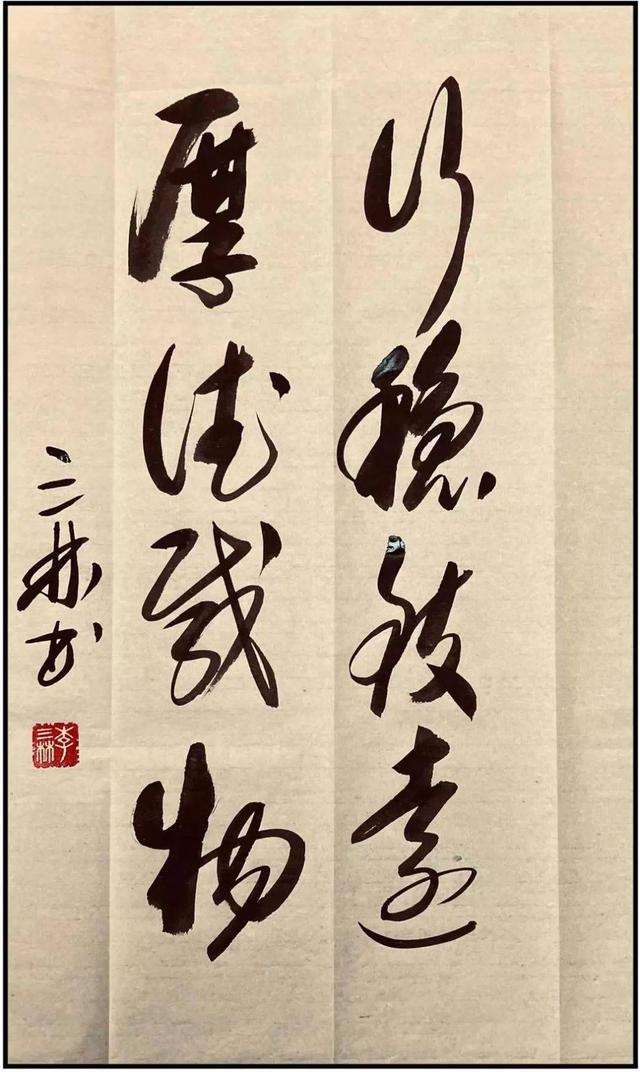 行穩致遠
厚德載物
三林書
李三林